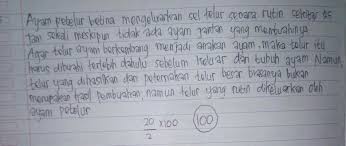 Ayam petelur betina mengeluarkan sel telur secara rutin sekitar 25
jam sekali meskipun tidak ada ayam jantan yang membuahinya
Agar telur ayam berkembang menjadi anakan ayam, maka telur itu
harus dibuahi terlebih dahulu sebelum keluar dari tubuh ayam Namun,
telur yang dihasilkan dari peternakan telur besar biasanya bukan
merupakan hasil pembuahan, namun telur yang rutin dikeluarkan oleh
ayam petelur
20 x100 100
2